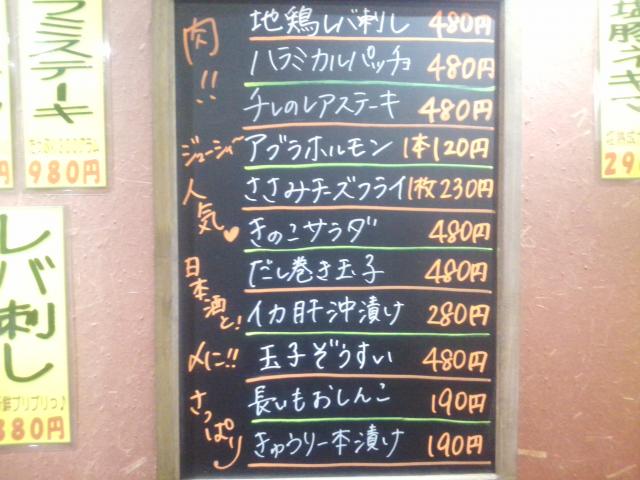 肉!!
地鶏レバ刺し 480円
ハラミカルパッチョ 480円
チレのレアステーキ 480円
ジューシィ〜 アブラホルモン 1本120円
人気♥
ささみチーズフライ 1枚230円
きのこサラダ 480円
だし巻き玉子 480円
日本酒と!
イカ肝沖漬け 280円
〆に!! 玉子ぞうすい 480円
さっぱり
長いもおしんこ 190円
きゅうり一本漬け 190円
ラミステーキ
980円
レバ刺し
プリプリっ♪
380円
塩豚ネギマ
29